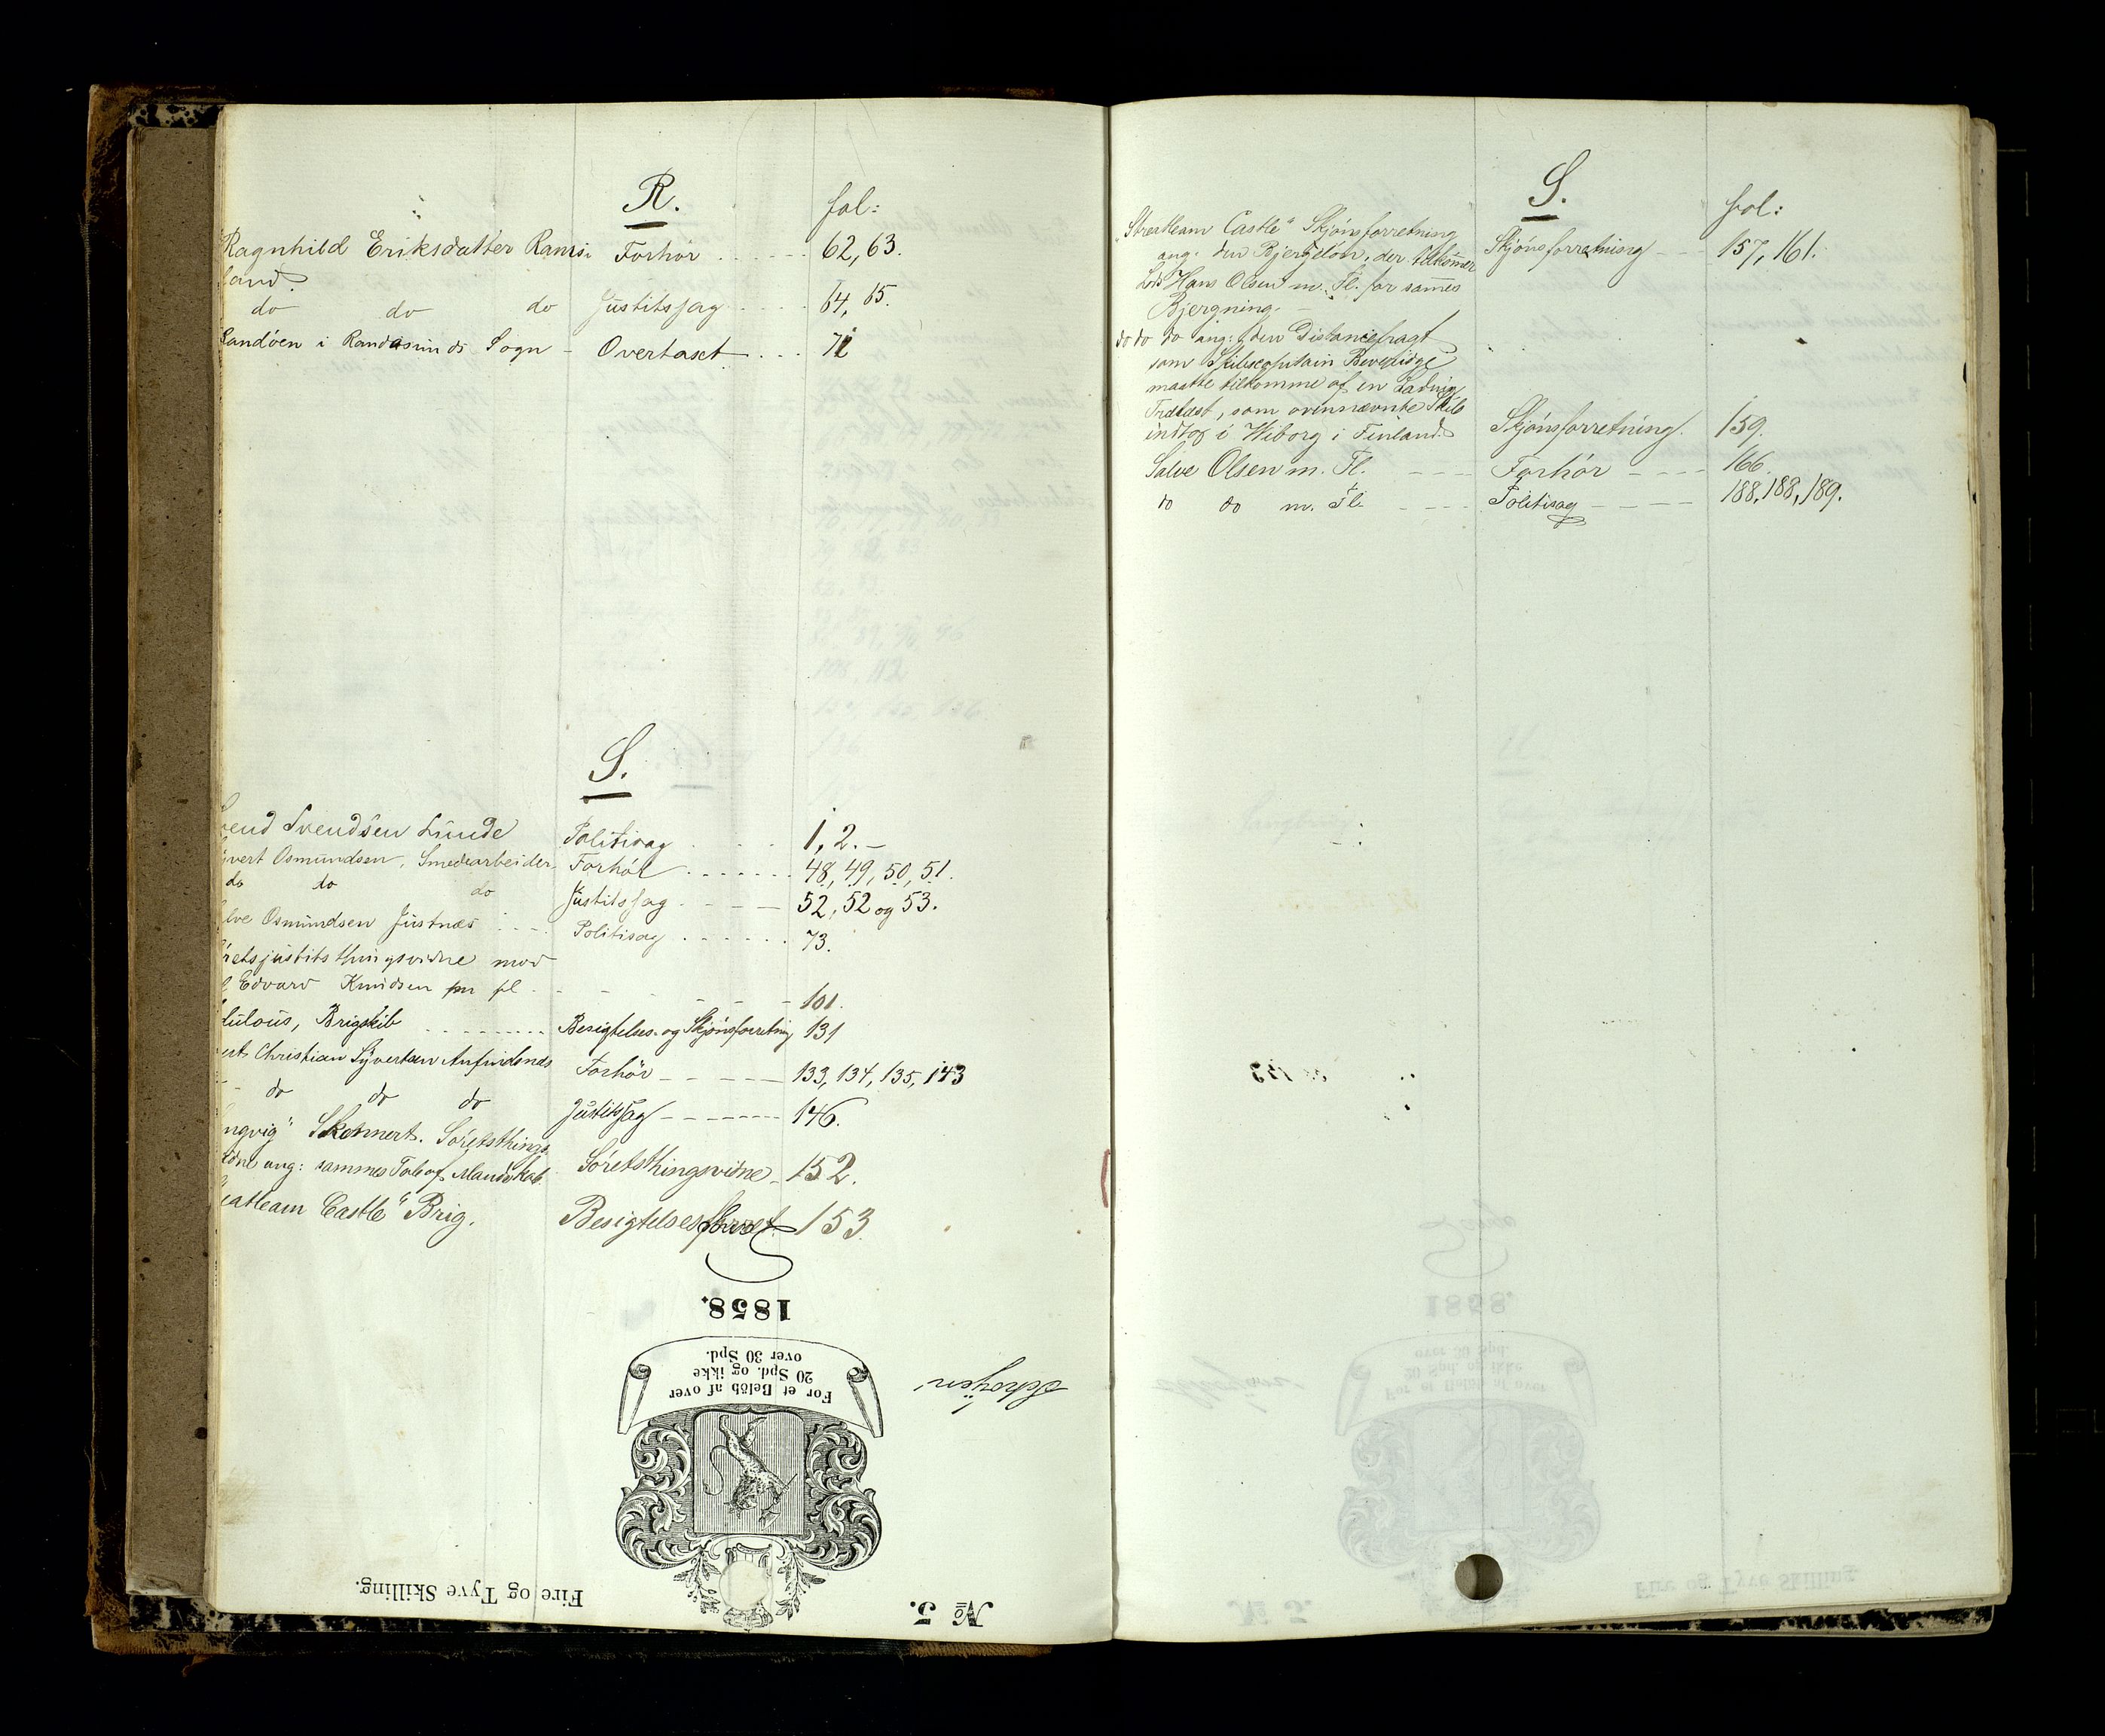 R.
fol:
Ragnhild Eriksdatter Ransi Forhör . . . . . . 62, 63.
land.
do do do Justitssag . . . . 64, 65.
Randöen i Randösunds Sogn - Overtaxt . . . 71
S.
vend Svendsen Lunde Politisag . . . . 1, 2. -
ivert Osmundsen, Smedearbeider Forhör . . . . . . . 48, 49, 50, 51.
do do do Justitssag . - - - 52, 52 og 53.
lve Osmundsen Justnæs . . . . Politisag . . . . . . . 73.
retsjustitsthingsvidne mod
Edvard Knudsen m fl - - - - - - - 101.
lulous, Brigskib . . . . . . . . . Besigtelses- og Skjönsforretning 131
Christian Syvertsen Anfindsnæs Forhör - - - - - 133, 134, 135, 143
- do do do Justitssag - - - - - - - 146.
ngvig" Skonnert. Söretsthings
idne ang: sammes Tab af Mandskab. Söretsthingsvidne - 152.
eatleam Castle" Brig. Besigtelsesforret. 153.
1858.
For et Belöb af over
20 Spd. og ikke
over 30 Spd.
Fire og Tyve Skilling.
No 5.
S.
fol:
"Streatleam Castle" Skjönsforretning
ang. den Bjergelön, der tilkommer Skjönsforretning - - - 157, 161.
Lods Hans Olsen m. Fl. for sammes
Bjergning. -
do do do ang: den Distancefragt
som Skibscaptain Beveridge
maatte tilkomme af en Ladning
Trælast, som ovennævnte Skib
indtog i Wiborg i Finland. Skjönsforretning. 159.
Salve Olsen m. Fl. - - - Forhör - - - - 166.
do do m. Fl. - - - - Politisag - - - - - 188, 188, 189.